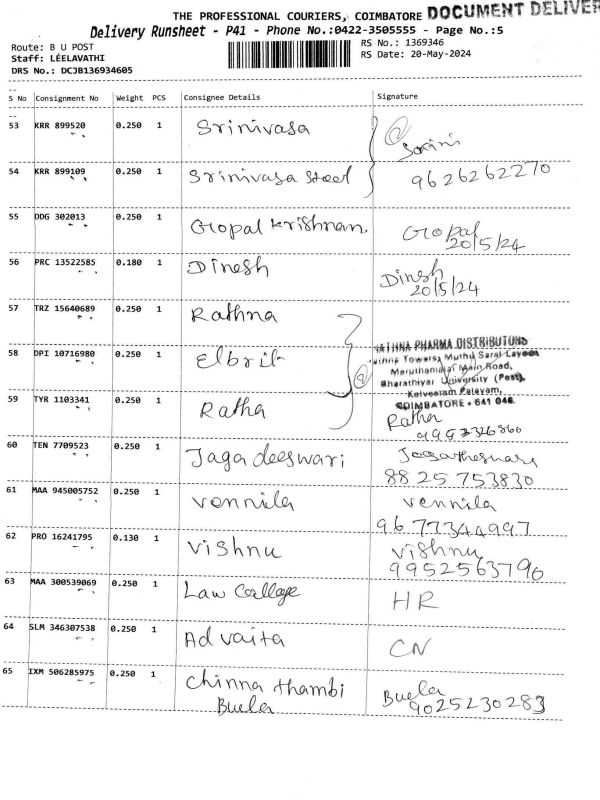 THE PROFESSIONAL COURIERS, COIMBATORE DOCUMENT DELIVER
Delivery Runsheet - P41 - Phone No.:0422-3505555 - Page No.:5
Route: B U POST
Staff: LEELAVATHI
DRS No.: DCJB136934605
RS No.: 1369346
RS Date: 20-May-2024
S No Consignment No Weight PCS Consignee Details Signature
53 KRR 899520 0.250 1 Srinivasa
54 KRR 899109 0.250 1 Srinivasa Steel 9626262270
55 DDG 302013 0.250 1 Gopal Krishnan. Gopal
20/5/24
56 PRC 13522585 0.180 1 Dinesh Dinesh
20/5/24
57 TRZ 15640689 0.250 1 Rathna
RATHNA PHARMA DISTRIBUTORS
Rathna Towers, Muthu Sarai Layout
Maruthamalai Main Road,
58 DPI 10716980 0.250 1 Elbrit Bharathiyar University (Post),
Kalveeram Palayam,
COIMBATORE - 641 046.
59 TYR 1103341 0.250 1 Ratha Ratha
60 TEN 7709523 0.250 1 Jagadeeswari
88 25 753830
61 MAA 945005752 0.250 1 Vennila Vennila
96 77344997
62 PRO 16241795 0.130 1 Vishnu Vishnu
9952563796
63 MAA 300539069 0.250 1 Law College HR
64 SLM 346307538 0.250 1 Advaita CN
65 IXM 506285975 0.250 1 Chinna thambi Buela
Buela 9025230283